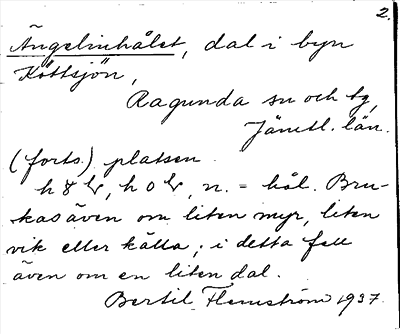 2.
Ängelinhålet, dal i byn
Köttsjön,
Ragunda sn och tg,
Jämtl. län.
(forts.) platsen.
n. = hål. Bru-
kas även om liten myr, liten
vik eller källa; i detta fall
även om en liten dal.
Bertil Flemström 1937.